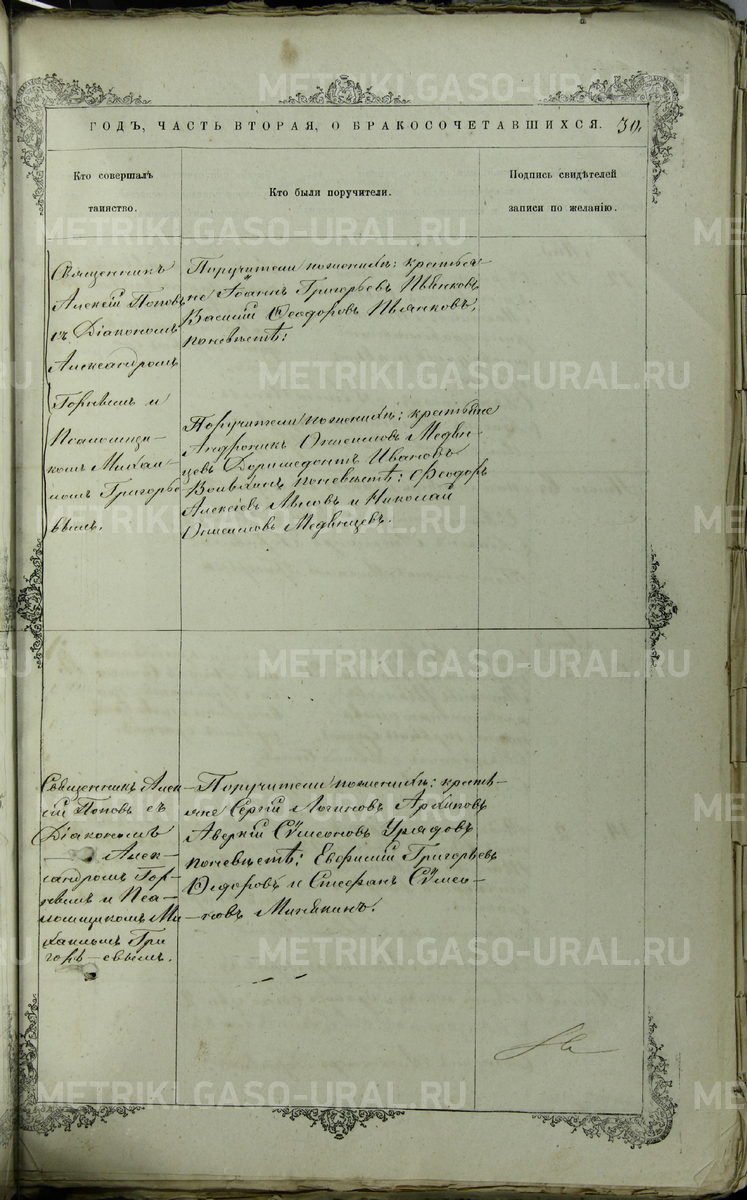 ГОДЪ, ЧАСТЬ ВТОРАЯ, О БРАКОСОЧЕТАВШИХСЯ. 30,
Кто совершалъ
таинство.
Кто были поручители.
Подпись свидѣтелей
записи по желанію.
Священникъ
Алексій Поповъ
съ Діакономъ
Александромъ
и
Псаломщи-
комъ Михаи-
ломъ Григорье
вымъ.
Поручители по женихѣ: крестья
не Іоаннъ Григорьевъ Пьянковъ
Василій Ѳеодоровъ Пьянковъ,
по невѣстѣ:
Поручители по женихѣ: крестьяне
Андроникъ Медвѣ-
цевъ Доримедонтъ Ивановъ
по невѣстѣ: Ѳеодоръ
Алексѣевъ и Николай
Священникъ Алек-
сій Поповъ съ
Діакономъ
Алек-
сандромъ Гор-
и Пса-
ломщикомъ Ми
хаиломъ Гри
горь-евымъ.
Поручители по женихѣ: кресть-
яне Сергій Логиновъ Архиповъ
Аверкій Сѵмеоновъ
по невѣстѣ; Евфимій Григорьевъ
и Стефанъ Сѵмео-
новъ
METRIKI.GASO-URAL.RU